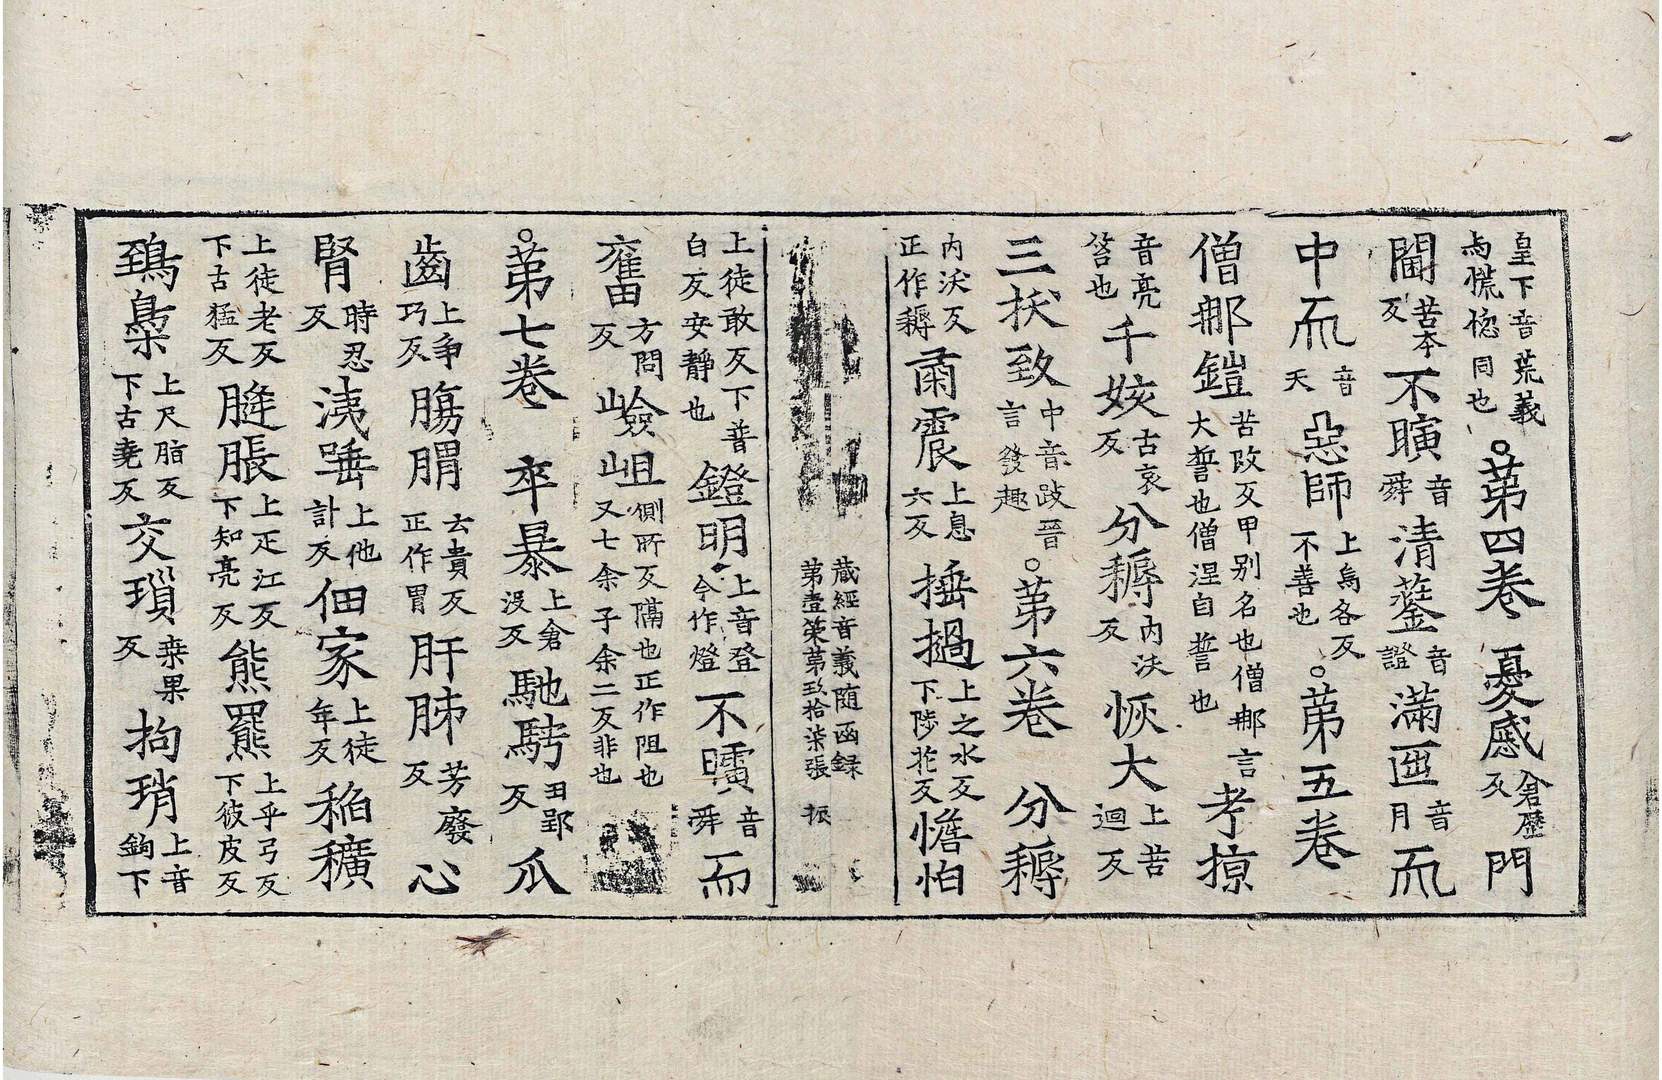 皇下音荒義
与慌惚同也。第四卷　憂慼倉歴反門
閫苦本反不瞚音舜清蓥音證滿匝音月而
中而音天惡師上烏各反不善也。第五卷
僧那鎧苦改反甲别名也僧那言大誓也僧涅自誓也考掠
音亮笞也千姟古哀反分耨内沃反恢大上苦迴反
三拔致中音跋晉言發趣。第六卷　分耨
内沃反正作耨肅震上息六反捶撾上之水反下陟花反憺怕
藏經音義随函録
第壹筞第玖拾柒張　振
上徒敢反下普白反安靜也鐙明上音登今作燈不瞚音舜而
奮方問反嶮岨側所反隔也正作阻也又七余子余二反非也
。第七卷　卒暴上倉没反馳騁丑郢反瓜
齒上爭巧反腸𦛢云貴反正作胃肝肺芳廢反心
腎時忍反洟唾上他計反佃家上徒年反稻穬
上徒老反下古猛反胮脹上疋江反下知亮反熊羆上乎弓反下彼皮反
鵄梟上尺脂反下古堯反交瑣桒果反拘㻛上音鉤下